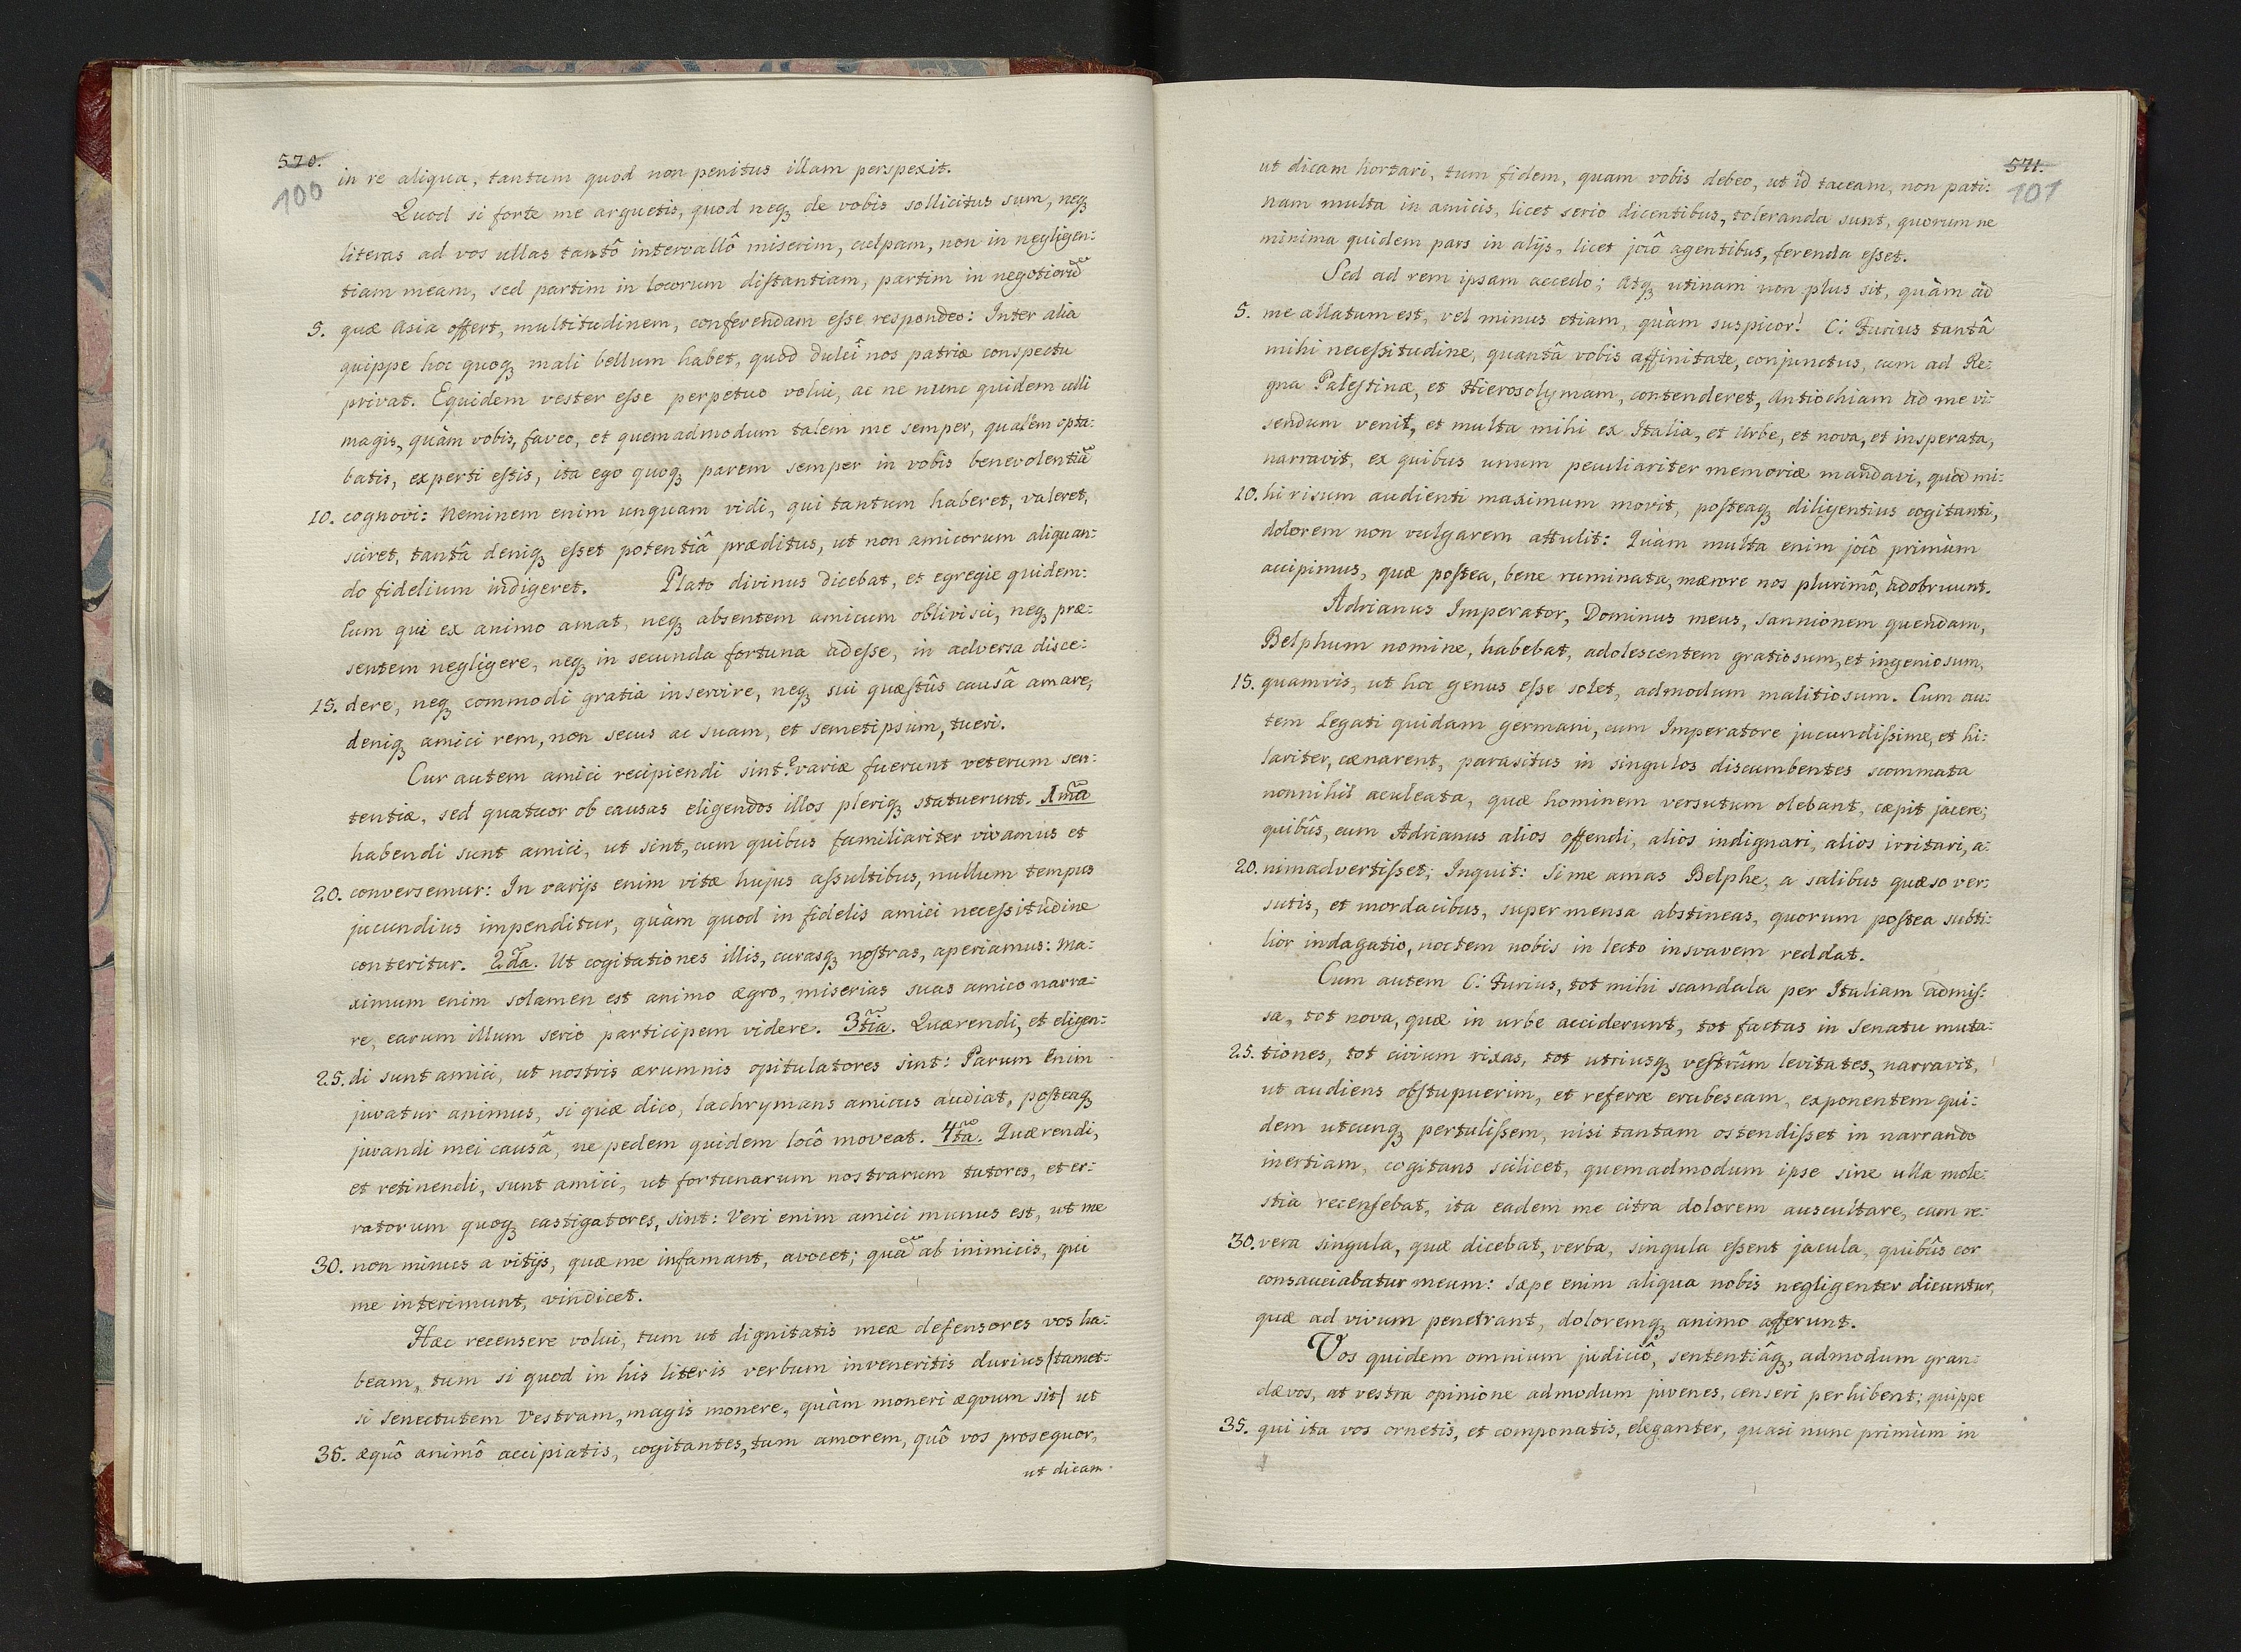 570.
100
in re aliqua, tantum quod non penitus illam perspexit.
Quod si forte me arguetis, quod neq; de vobis sollicitus sum, neq;
literas ad vos ullas tantô intervallô miserim, culpam, non in negligen:
tiam meam, sed partim in locorum distantiam, partim in negotiorũ
5. quæ Asia offert, multitudinem, conferendam esse respondeo: Inter alia
quippe hoc quoq; mali bellum habet, quod dulci nos patriæ conspectu
privat. Equidem vester esse perpetuo volui, ac ne nunc quidem ulli
magis, quàm vobis, faveo, et quemadmodum talem me semper, qualem opta:
batis, experti estis, ita ego quoq; parem semper in vobis benevolentiã
10. cognovi: Neminem enim unquam vidi, qui tantum haberet, valeret,
sciret, tantâ deniq; esset potentiâ præditus, ut non amicorum aliquan:
do fidelium indigeret. Plato divinus dicebat, et egregie quidem:
Eum qui ex animo amat, neq; absentem amicum oblivisci, neq; præ:
sentem negligere, neq; in secunda fortuna adesse, in adversa disce:
15. dere, neq; commodi gratia inservire, neq; sui quæstûs causâ amare,
deniq; amici rem, non secus ac suam, et semetipsum, tueri.
Cur autem amici recipiendi sint? variæ fuerunt veterum sen:
tentiæ, sed quatuor ob causas eligendos illos pleriq; statuerunt. 1ma
habendi sunt amici, ut sint, cum quibus familiariter vivamus et
20. conversemur: In varijs enim vitæ hujus assultibus, nullum tempus
jucundius impenditur, quàm quod in fidelis amici necessitudine
conteritur. 2da. Ut cogitationes illis, curasq; nostras, aperiamus: Ma:
ximum enim solamen est animo ægro, miserias suas amico narra:
re, earum illum serio participem videre. 3tia. Quærendi, et eligen:
25. di sunt amici, ut nostris ærumnis opitulatores sint: Parum enim
juvatur animus, si quæ dico, lachrymans amicus audiat, posteaq;
juvandi mei causâ, ne pedem quidem locô moveat. 4ta. Quærendi,
et retinendi, sunt amici, ut fortunarum nostrarum tutores, et er:
ratorum quoq; castigatores, sint: Veri enim amici munus est, ut me
30. non minus a vitijs, quæ me infamant, avocet; quã ab inimicis, qui
me interimunt, vindicet.
Hæc recensere volui, tum ut dignitatis meæ defensores vos ha:
beam, tum si quod in his literis verbum inveneritis durius (tamet:
si senectutem vestram, magis monere, quàm moneri æquum sit) ut
35. æquô animô accipiatis, cogitantes, tum amorem, quô vos prosequor,
ut dicam
571.
101
ut dicam hortari, tum fidem, quam vobis debeo, ut id taceam, non pati:
Nam multa in amicis, licet serio dicentibus, toleranda sunt, quorum ne
minima quidem pars in alijs, licet jocô agentibus, ferenda esset.
Sed ad rem ipsam accedo; Atq; utinam non plus sit, quàm ad
5. me allatum est, vel minus etiam, quàm suspicor! C: Furius tantâ
mihi necessitudine, quantâ vobis affinitate, conjunctus, cum ad Re:
gna Palestinæ, et Hierosolymam, contenderet, Antiochiam ad me vi:
sendum venit, et multa mihi ex Italia, et Urbe, et nova, et insperata,
narravit, ex quibus unum peculiariter memoriæ mandavi, quod mi:
10. hi risum audienti maximum movit, posteaq; diligentius cogitanti,
dolorem non vulgarem attulit: Quàm multa enim jocô primùm
accipimus, quæ postea, bene ruminata, mærore nos plurimô, adobruunt.
Adrianus Imperator, Dominus meus, sannionem quendam,
Belphum nomine, habebat, adolescentem gratiosum, et ingeniosum,
15. quamvis, ut hoc genus esse solet, admodum malitiosum. Cum au:
tem Legati quidam germani, cum Imperatore jucundissime, et hi:
lariter, cænarent, parasitus in singulos discumbentes scommata
nonnihil aculeata, quæ hominem versutum olebant, cæpit jacere;
quibûs, cum Adrianus alios offendi, alios indignari, alios irritari, a:
20. nimadvertisset; Inquit: Si me amas Belphe, a salibus quæso ver:
sutis, et mordacibus, super mensa abstineas, quorum postea subti:
lior indagatio, noctem nobis in lecto insvavem reddat.
Cum autem C: Furius, tot mihi scandala per Italiam admis:
sa, tot nova, quæ in urbe acciderunt, tot factas in Senatu muta:
25. tiones, tot civium rixas, tot utriusq; vestrûm levitates, narravit,
ut audiens obstupuerim, et referre erubescam, exponentem qui:
dem utcunq; pertulissem, nisi tantam ostendisset in narrando
inertiam, cogitans scilicet, quemadmodum ipse sine ulla mole:
stia recensebat, ita eadem me citra dolorem auscultare, cum re:
30. vera singula, quæ dicebat, verba, singula essent jacula, quibûs cor
consauciabatur meum: Sæpe enim aliqua nobis negligenter dicuntur,
quæ ad vivum penetrant, doloremq; animo afferunt.
Vos quidem omnium judiciô, sententiâq;, admodum gran:
dævos, at vestra opinione admodum juvenes, censeri perhibent; quippe
35. qui ita vos ornetis, et componatis, eleganter, quasi nunc primùm in